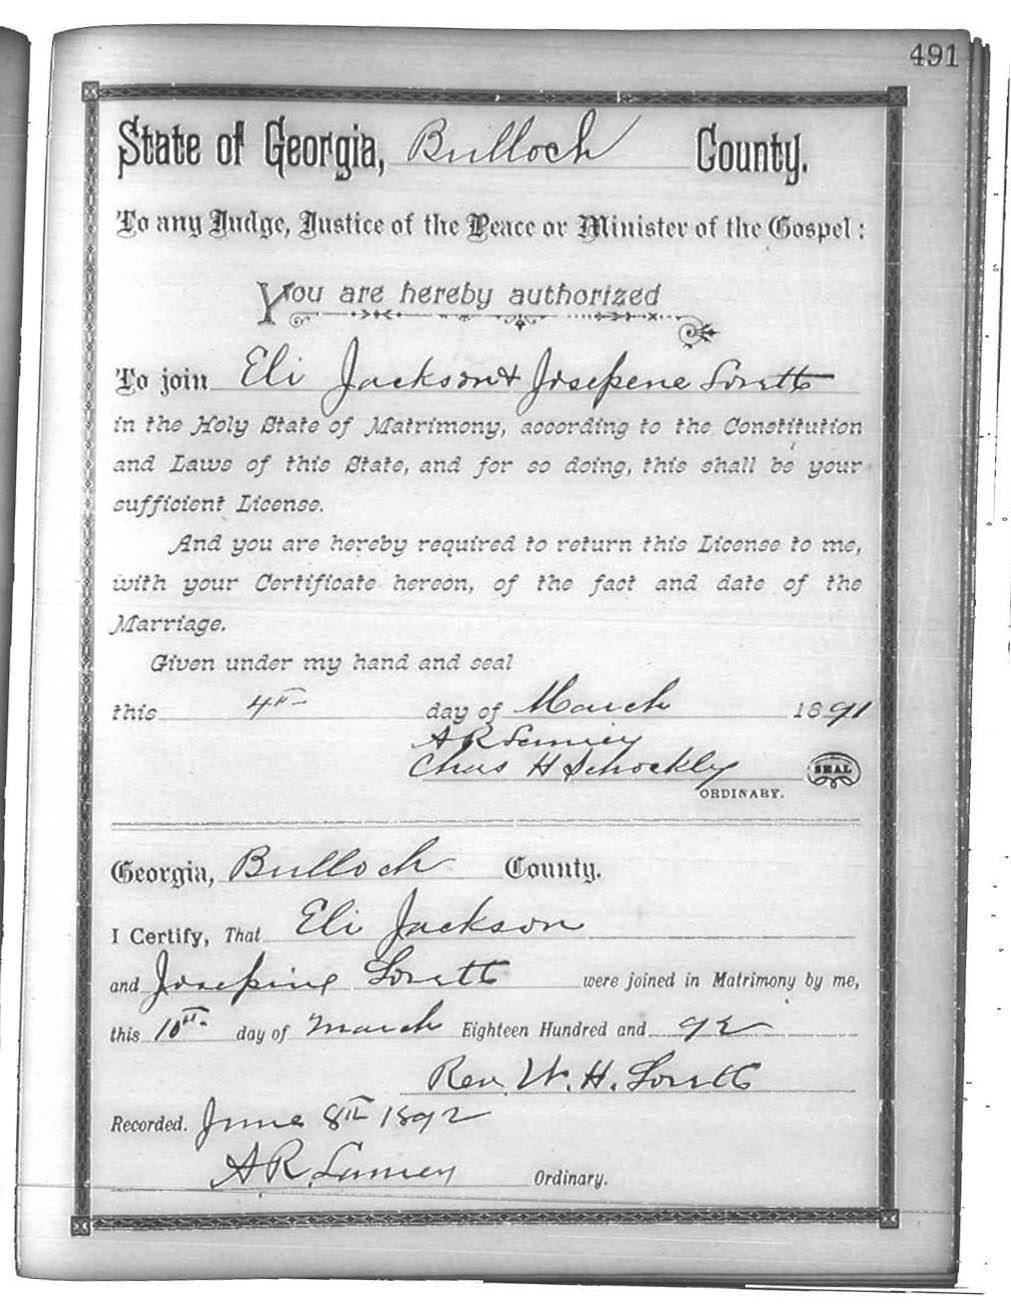 491
State of Georgia, Bulloch County.
To any Judge, Justice of the Peace or Minister of the Gospel:
You are hereby authorized
To join Eli Jackson & Josepene Lovett
in the Holy State of Matrimony, according to the Constitution
and Laws of this State, and for so doing, this shall be your
sufficient License.
And you are hereby required to return this License to me,
with your Certificate hereon, of the fact and date of the
Marriage.
Given under my hand and seal
this 4th day of March 1891
A R Lanier
Chas H Shockly SEAL
ORDINARY.
Georgia, Bulloch County.
I Certify, That Eli Jackson
and Josephine Lovett were joined in Matrimony by me,
this 10th day of March Eighteen Hundred and 92
Rev. W. H. Lovett
Recorded. June 8th 1892
A R Lanier Ordinary.